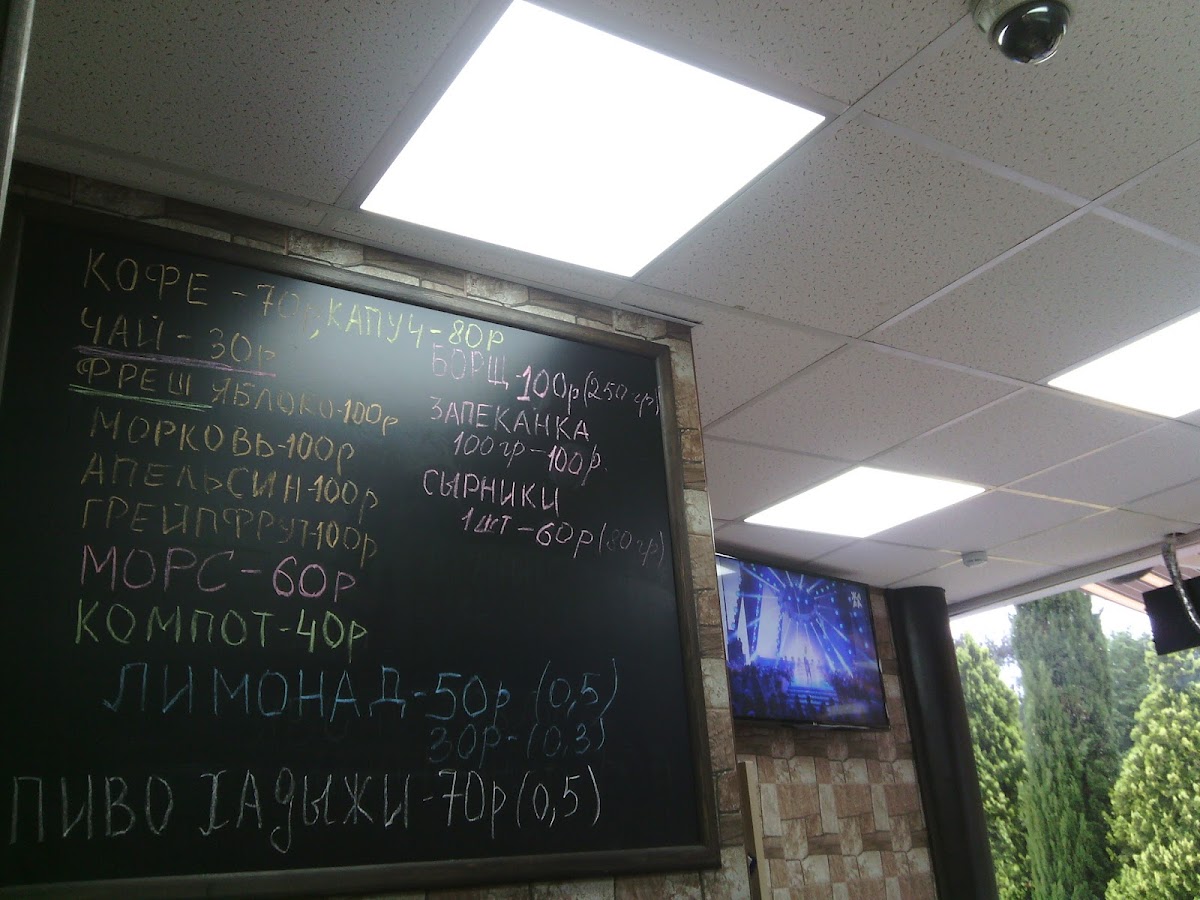 КОФЕ - 70р, КАПУЧ-80р
ЧАЙ - 30р
ФРЕШ ЯБЛОКО-100р
МОРКОВЬ-100р
АПЕЛЬСИН-100р
ГРЕЙПФРУТ-100р
МОРС-60р
КОМПОТ-40р
БОРЩ-100р(250гр)
ЗАПЕКАНКА
100гр-100р.
СЫРНИКИ
1шт-60р(80гр)
ЛИМОНАД-50р-(0,5)
30р-(0,3)
ПИВО ХАДЫЖИ-70р(0,5)